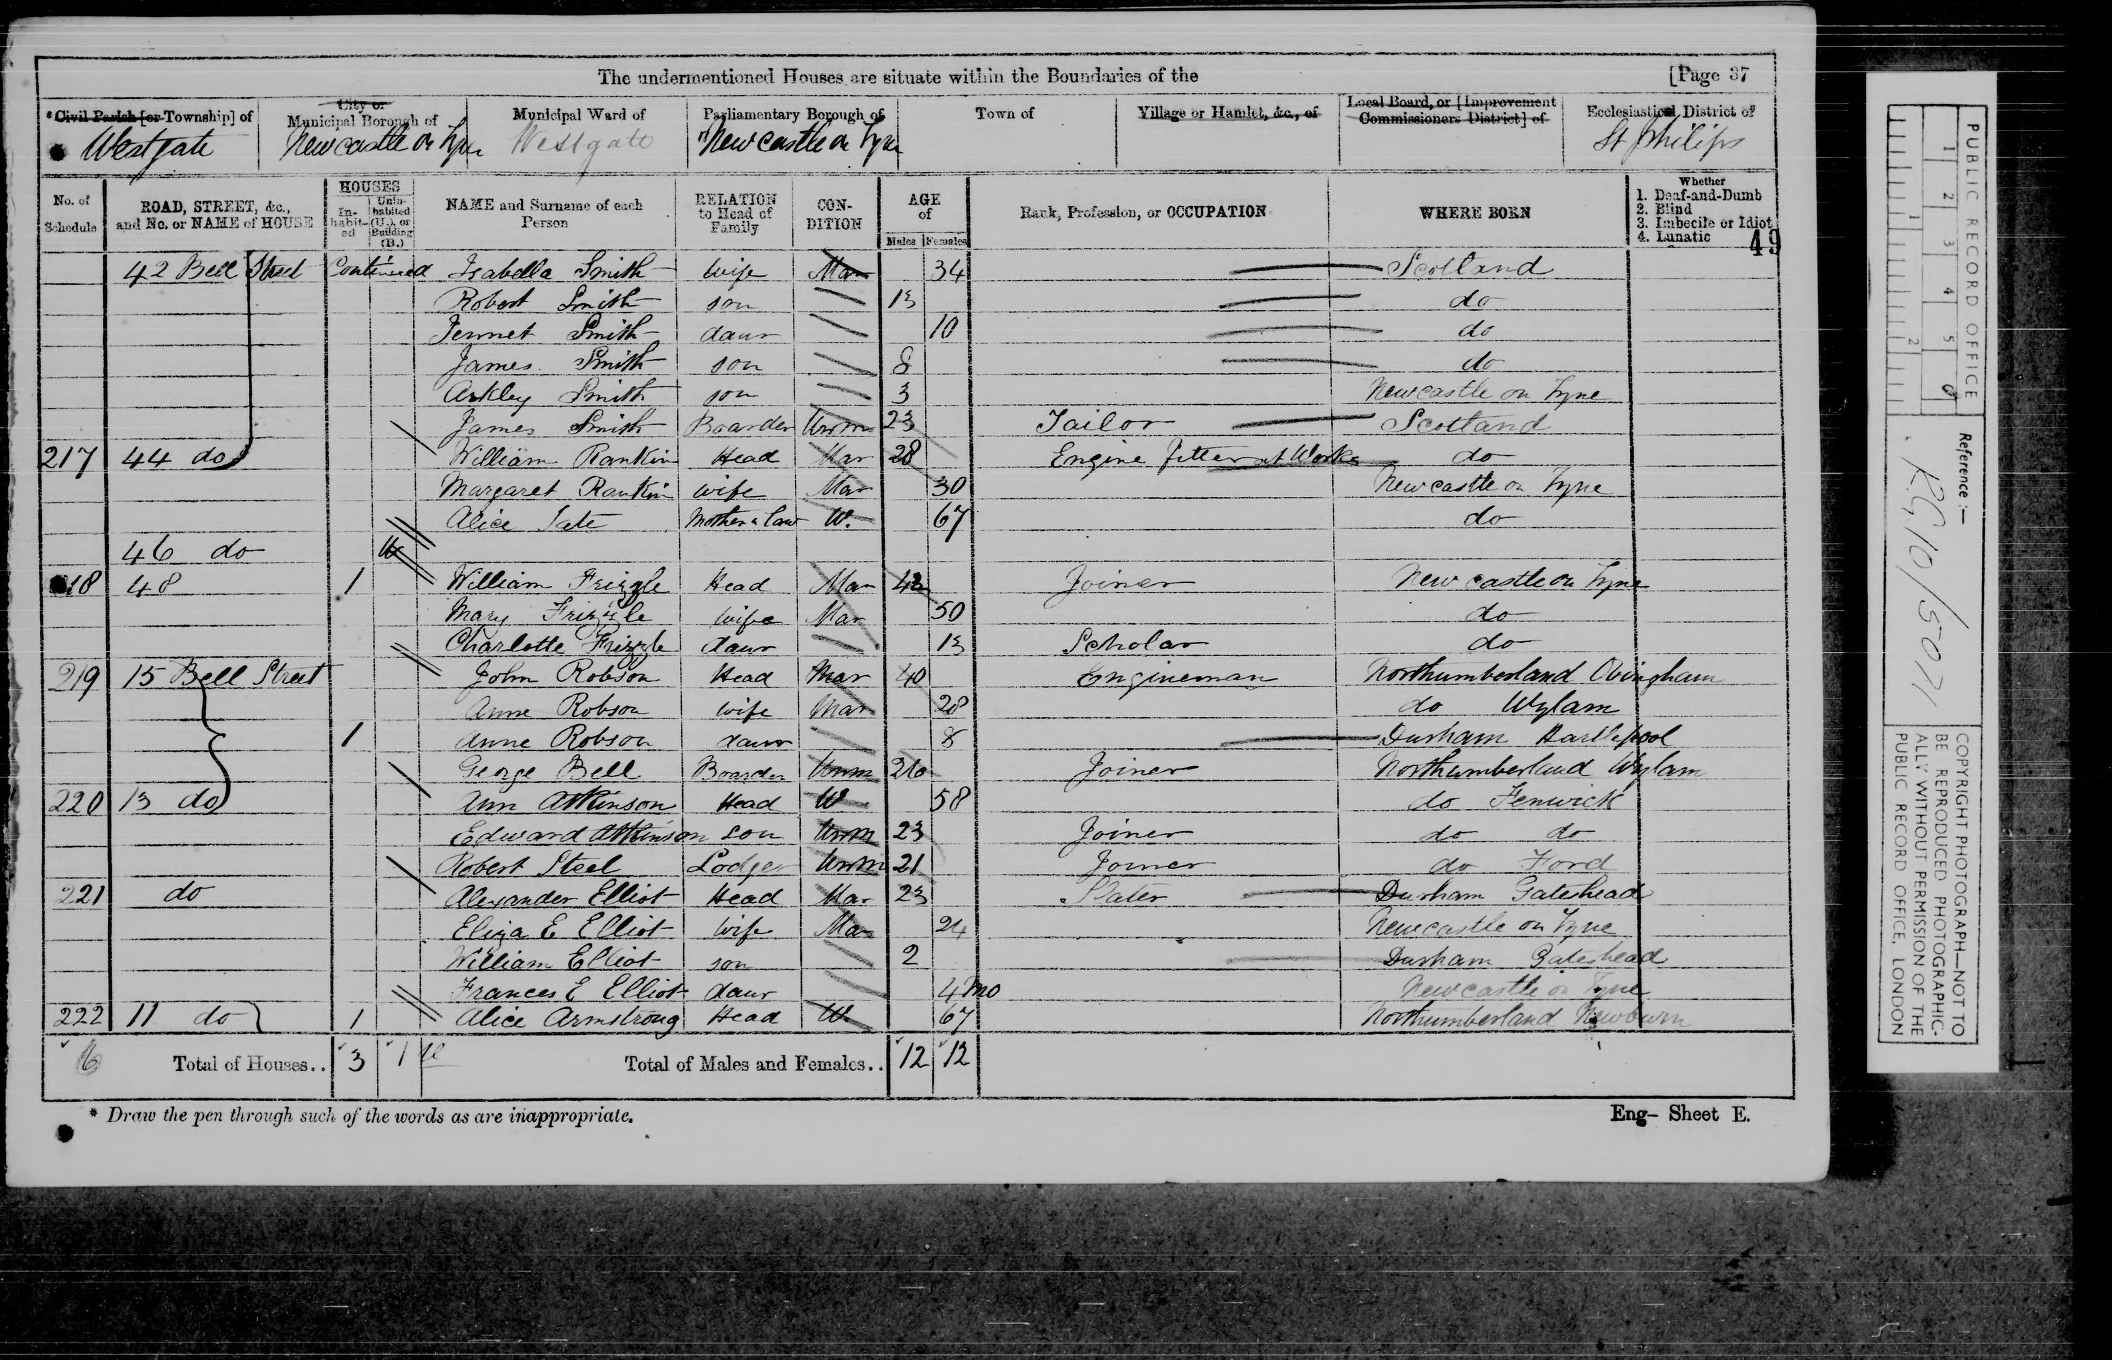 The undermentioned Houses are situate within the Boundaries of the [Page 37
*Civil Parish [or Township] of City or Municipal Borough of Municipal Ward of Parliamentary Borough of Town of Village or Hamlet, &c., of Local Board, or [Improvement Commissioners District] of Ecclesiastical District of
Westgate Newcastle on Tyne Westgate Newcastle on Tyne St Philips
No. of Schedule ROAD, STREET, &c., and No. or NAME of HOUSE HOUSES In-habit-ed Unin-habited (U.), or Building (B.) NAME and Surname of each Person RELATION to Head of Family CON-DITION AGE of Males Females Rank, Profession, or OCCUPATION WHERE BORN Whether 1. Deaf-and-Dumb 2. Blind 3. Imbecile or Idiot 4. Lunatic
49
42 Bell Street Continued Isabella Smith wife Mar 34 Scotland
Robert Smith son 13 do
Jennet Smith daur 10 do
James Smith son 8 do
Arkley Smith son 3 Newcastle on Tyne
James Smith Boarder Unm 23 Tailor Scotland
217 44 do William Rankin Head Mar 28 Engine Fitter at Works do
Margaret Rankin wife Mar 30 Newcastle on Tyne
Alice Tate Mother in law W. 67 do
46 do
18 48 1 William Frizzle Head Mar 42 Joiner Newcastle on Tyne
Mary Frizzle wife Mar 50 do
Charlotte Frizzle daur 13 Scholar do
219 15 Bell Street John Robson Head Mar 40 Engineman Northumberland Ovingham
Anne Robson wife Mar 28 do Wylam
1 Anne Robson daur 8 Durham Hartlepool
George Bell Boarder Unm 26 Joiner Northumberland Wylam
220 13 do Ann Atkinson Head W 58 do Fenwick
Edward Atkinson son Unm 23 Joiner do do
Robert Steel Lodger Unm 21 Joiner do Ford
221 do Alexander Elliot Head Mar 23 Slater Durham Gateshead
Eliza E Elliot wife Mar 24 Newcastle on Tyne
William Elliot son 2 Durham Gateshead
Frances E Elliot daur 4 mo Newcastle on Tyne
222 11 do 1 Alice Armstrong Head W. 67 Northumberland Newburn
6 Total of Houses.. 3 1 Total of Males and Females.. 12 12
* Draw the pen through such of the words as are inappropriate.
Eng- Sheet E.
PUBLIC RECORD OFFICE
1 2 3 4 5 6
1 2
Reference :-
RG10/5071
COPYRIGHT PHOTOGRAPH—NOT TO
BE REPRODUCED PHOTOGRAPHIC-
ALLY WITHOUT PERMISSION OF THE
PUBLIC RECORD OFFICE, LONDON